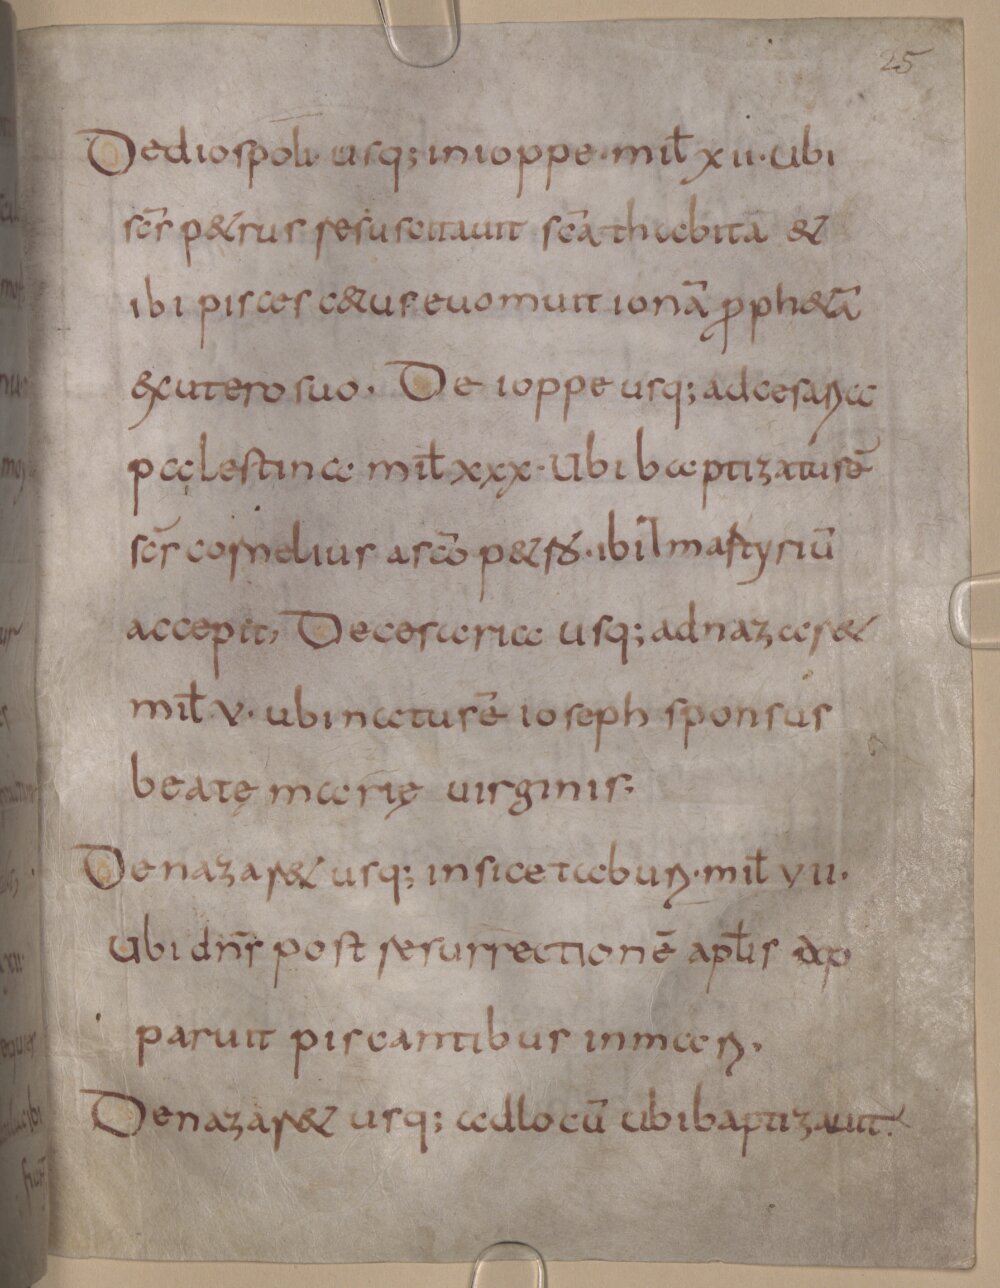 25
De diospoli· usq; in ioppe· mil̄ xii· ubi
sc̄s p&rus resuscitauit sc̄a thabita &
ibi pisces c&us euomuit ionā ꝓph&ā
ex utero suo· De ioppe usq; ad cesarea
palestina mil̄ xxx· Ubi baptizatus ē
sc̄s cornelius a sc̄o p&ro· ibi martyriū
accepit, De cesarica usq; ad nazar&
mil̄ v· ubi natus ē ioseph sponsus
beatę marię uirginis·
De nazar& usq; in sice taburi· mil̄ vii·
Ubi dn̄s post resurrectionē apl̄is ap
paruit piscantibus in mari·
De nazar& usq; ad locū ubi baptizauit·